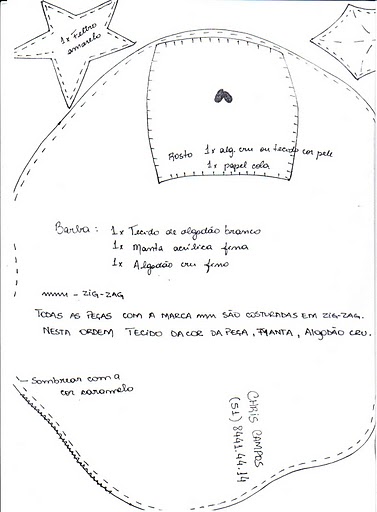 1x Feltro
amarelo
Rosto 1x alg. cru ou tecido cor pele
1x papel cola
Barba: 1x Tecido de algodão branco
1x Manta acrílica fina
1x Algodão cru fino
mmm - ZIG-ZAG
TODAS AS PEÇAS COM A MARCA mm SÃO COSTURADAS EM ZIG-ZAG.
NESTA ORDEM TECIDO DA COR DA PEÇA, MANTA, ALGODÃO CRU.
Sombrear com a
cor caramelo
CHRIS CAMPOS
(51) 8441.44.14